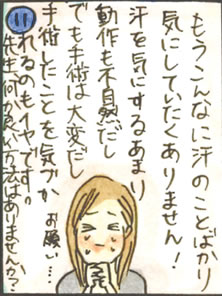 もうこんなに汗のことばかり
気にしていたくありません!
汗を気にするあまり
動作も不自然だし
でも手術は大変だし
手術したことを気づか
れるのもイヤです。
先生、何かいい方法はありませんか?
お願い…
11